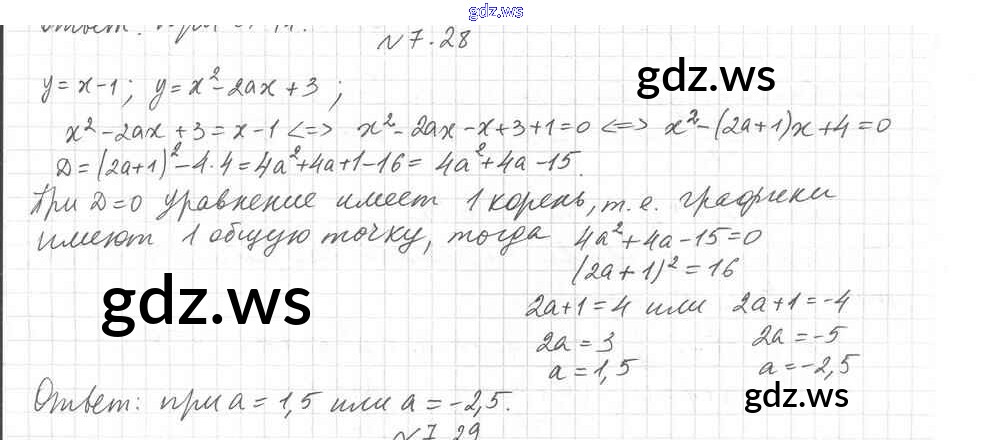 gdz.ws
Ответ: при
N 7.28
gdz.ws
y = x - 1; y = x² - 2ax + 3;
x² - 2ax + 3 = x - 1 <=> x² - 2ax - x + 3 + 1 = 0 <=> x² - (2a+1)x + 4 = 0
D = (2a+1)² - 4·4 = 4a² + 4a + 1 - 16 = 4a² + 4a - 15.
При D = 0 уравнение имеет 1 корень, т.е. графики
имеют 1 общую точку, тогда 4a² + 4a - 15 = 0
(2a+1)² = 16
gdz.ws
2a+1 = 4 или 2a+1 = -4
2a = 3 2a = -5
a = 1,5 a = -2,5
gdz.ws
Ответ: при a = 1,5 или a = -2,5.
N 7.29